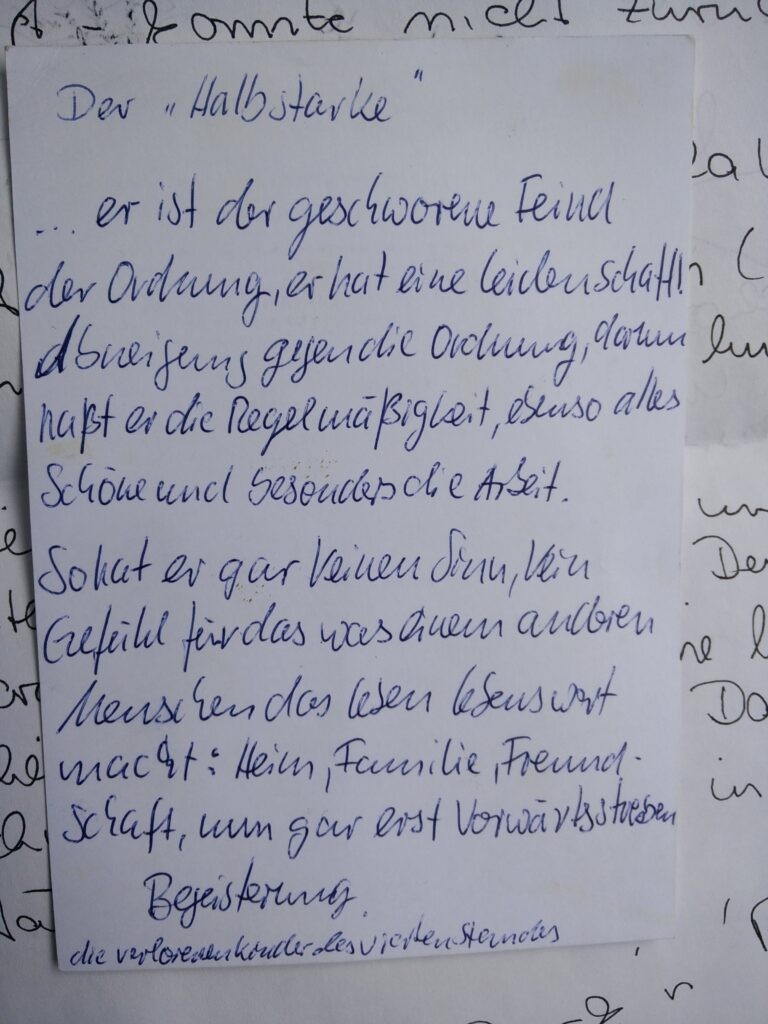 A - konnte nicht zurü
Der „Halbstarke"
... er ist der geschworene Feind
der Ordnung, er hat eine leidenschaftl.
Abneigung gegen die Ordnung, darum
haßt er die Regelmäßigkeit, ebenso alles
Schöne und besonders die Arbeit.
So hat er gar keinen Sinn, kein
Gefühl für das was einem anderen
Menschen das leben lebenswert
macht: Heim, Familie, Freund-
schaft, nun gar erst Vorwärtsstreben
Begeisterung.
die verlorenen Kinder des vierten Standes